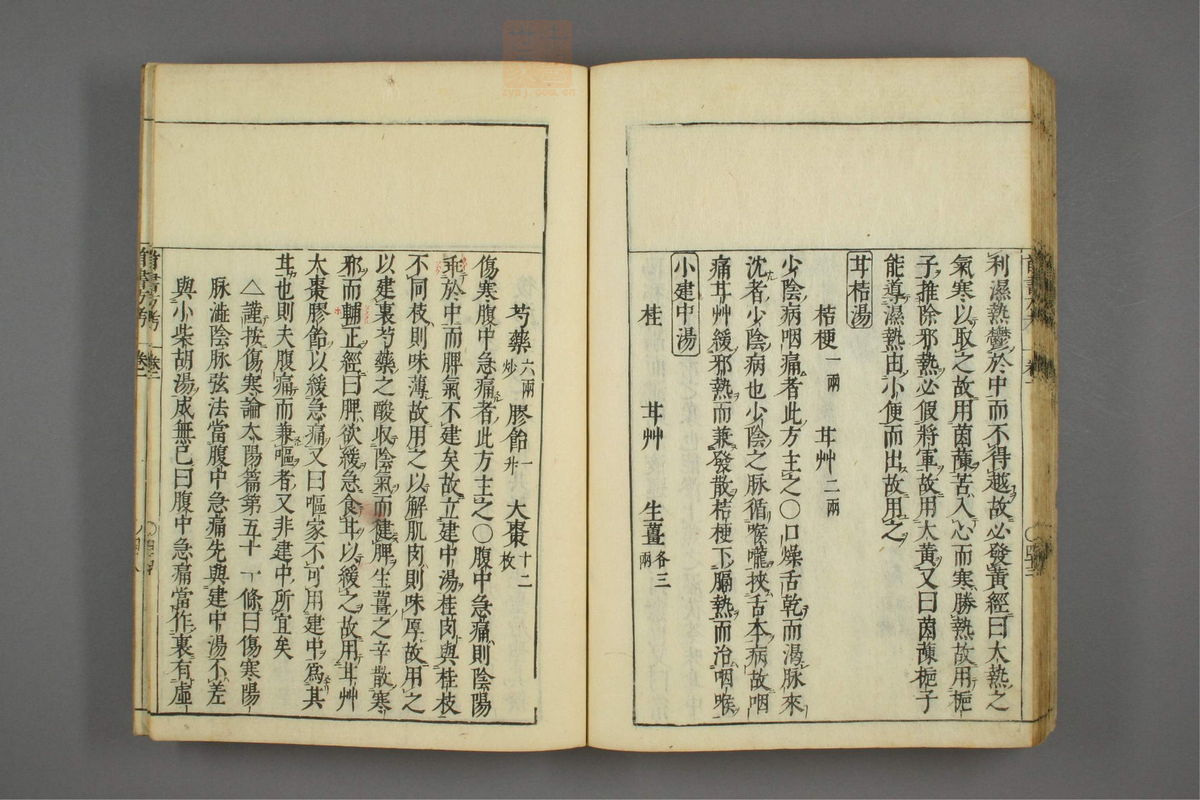 利濕熱鬱於中而不得越故必發黃經曰大熱之
氣寒以取之故用茵蔯苦入心而寒勝熱故用梔
子推除邪熱必假將軍故用大黃又曰茵蔯梔子
能導濕熱由小便而出故用之
甘桔湯
桔梗一兩 甘艸二兩
少陰病咽痛者此方主之○口燥舌乾而渴脉來
沈者少陰病也少陰之脉循喉嚨挾舌本病故咽
痛甘艸緩邪熱而兼發散桔梗下膈熱而治咽喉
小建中湯
桂 甘艸 生薑各三兩
芍藥六兩炒 膠飴一升 大棗十二枚
傷寒腹中急痛者此方主之○腹中急痛則陰陽
乖於中而脾氣不建矣故立建中湯桂肉與桂枝
不同枝則味薄故用之以解肌肉則味厚故用之
以建裏芍藥之酸收陰氣而健脾生薑之辛散寒
邪而輔正經曰脾欲緩急食甘以緩之故用甘艸
大棗膠飴以緩急痛又曰嘔家不可用建中為其
甘也則夫腹痛而兼嘔者又非建中所宜矣
△謹按傷寒論太陽篇第五十一條曰傷寒陽
脉澁陰脉弦法當腹中急痛先與建中湯不差
與小柴胡湯成無已曰腹中急痛當作裏有虛